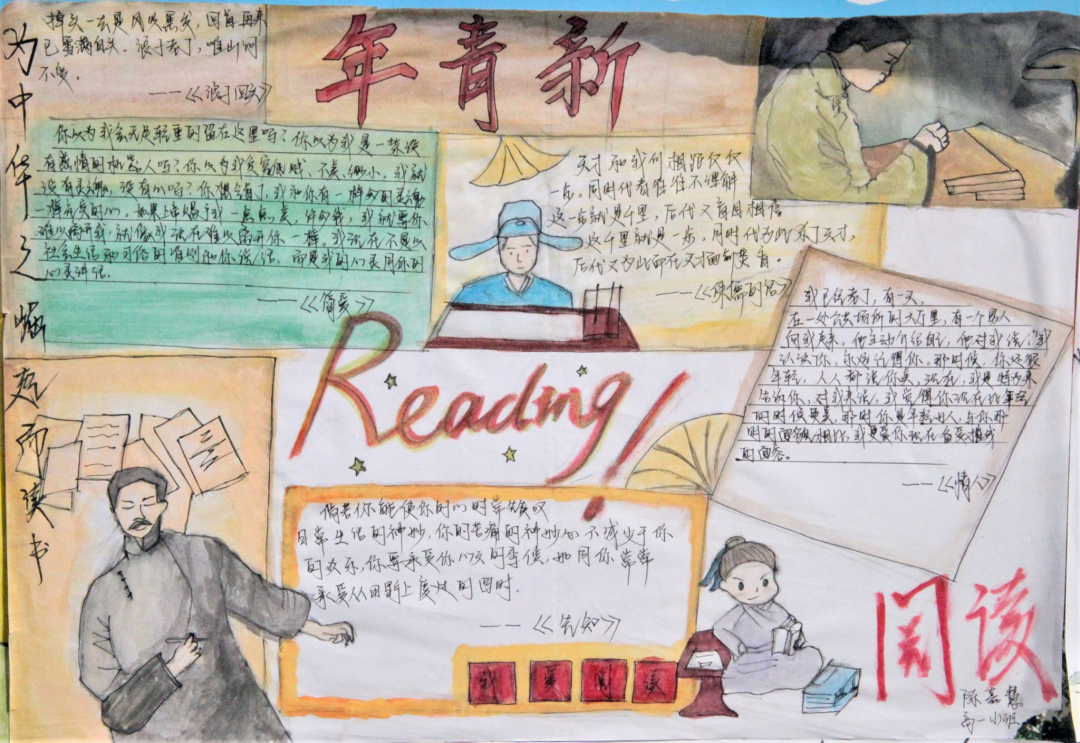 为中华之崛起而读书
掉头一去是风吹黑发,回首再来
已雪满白头。浪子老了,唯山河
不变。
——《浪子回头》
年青新
你以为我会无足轻重的留在这里吗?你以为我是一架没
有感情的机器人吗?你以为我贫穷低贱、不美、缈小,我就
没有灵魂,没有心吗?你想错了,我和你有一样多的灵魂
一样充实的心。如果上帝赐予我一点点美,许多钱,我就要你
难以离开我,就像我现在难以离开你一样,我现在不是以
社会生活和习俗的准则和你说话,而是我的心灵同你的
心灵讲话。
——《简爱》
天才和我们相距仅仅
一步。同时代者往往不理解
这一步就是千里,后代又盲目相信
这千里就是一步。同时代为此杀了天才,
后代又为此而在天才面前焚香。
——《侏儒的话》
Reading!
我已经老了,有一天,
在一处公共场所的大厅里,有一个男人
向我走来。他主动介绍自己,他对我说:"我
认识你,永远记得你。那时候,你还很
年轻,人人都说你美,现在,我是特为来
告诉你,对我来说,我觉得你现在比年轻
的时候更美,那时你是年轻女人,与你那
时的面貌相比,我更爱你现在备受摧残
的面容。
——《情人》
倘若你能使你的心时常赞叹
日常生活的神妙,你的苦痛的神妙必不减少于你
的欢乐,你要承受你心灵的季侯,如同你常常
承受从田野上度过的四时.
——《先知》
我爱阅读
阅读
陈嘉慧